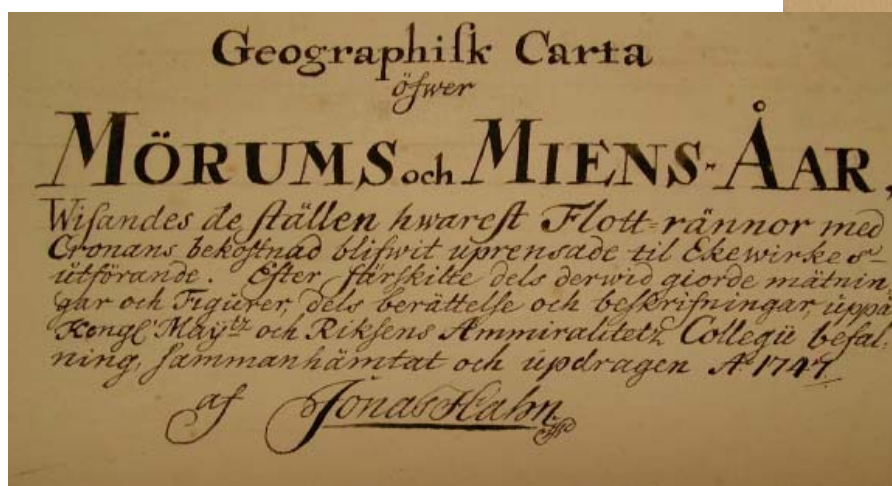 Geographiſk Carta
öfwer
MÖRUMS och MIENS-ÅAR,
Wiſandes de ſtällen hwareſt Flott-rännor med
Cronans bekoſtnad blifwit uprensade til Ekewirkes
utförande. Efter färſkilte dels derwid giorde mätnin
gar och Figurer, dels berättelſe och beſkrifningar, uppå
Kongl Maÿtz och Riksens Ammiralitetz Collegii befal-
ning, ſammanhämtat och updragen A 1747
af Jonas Hahn